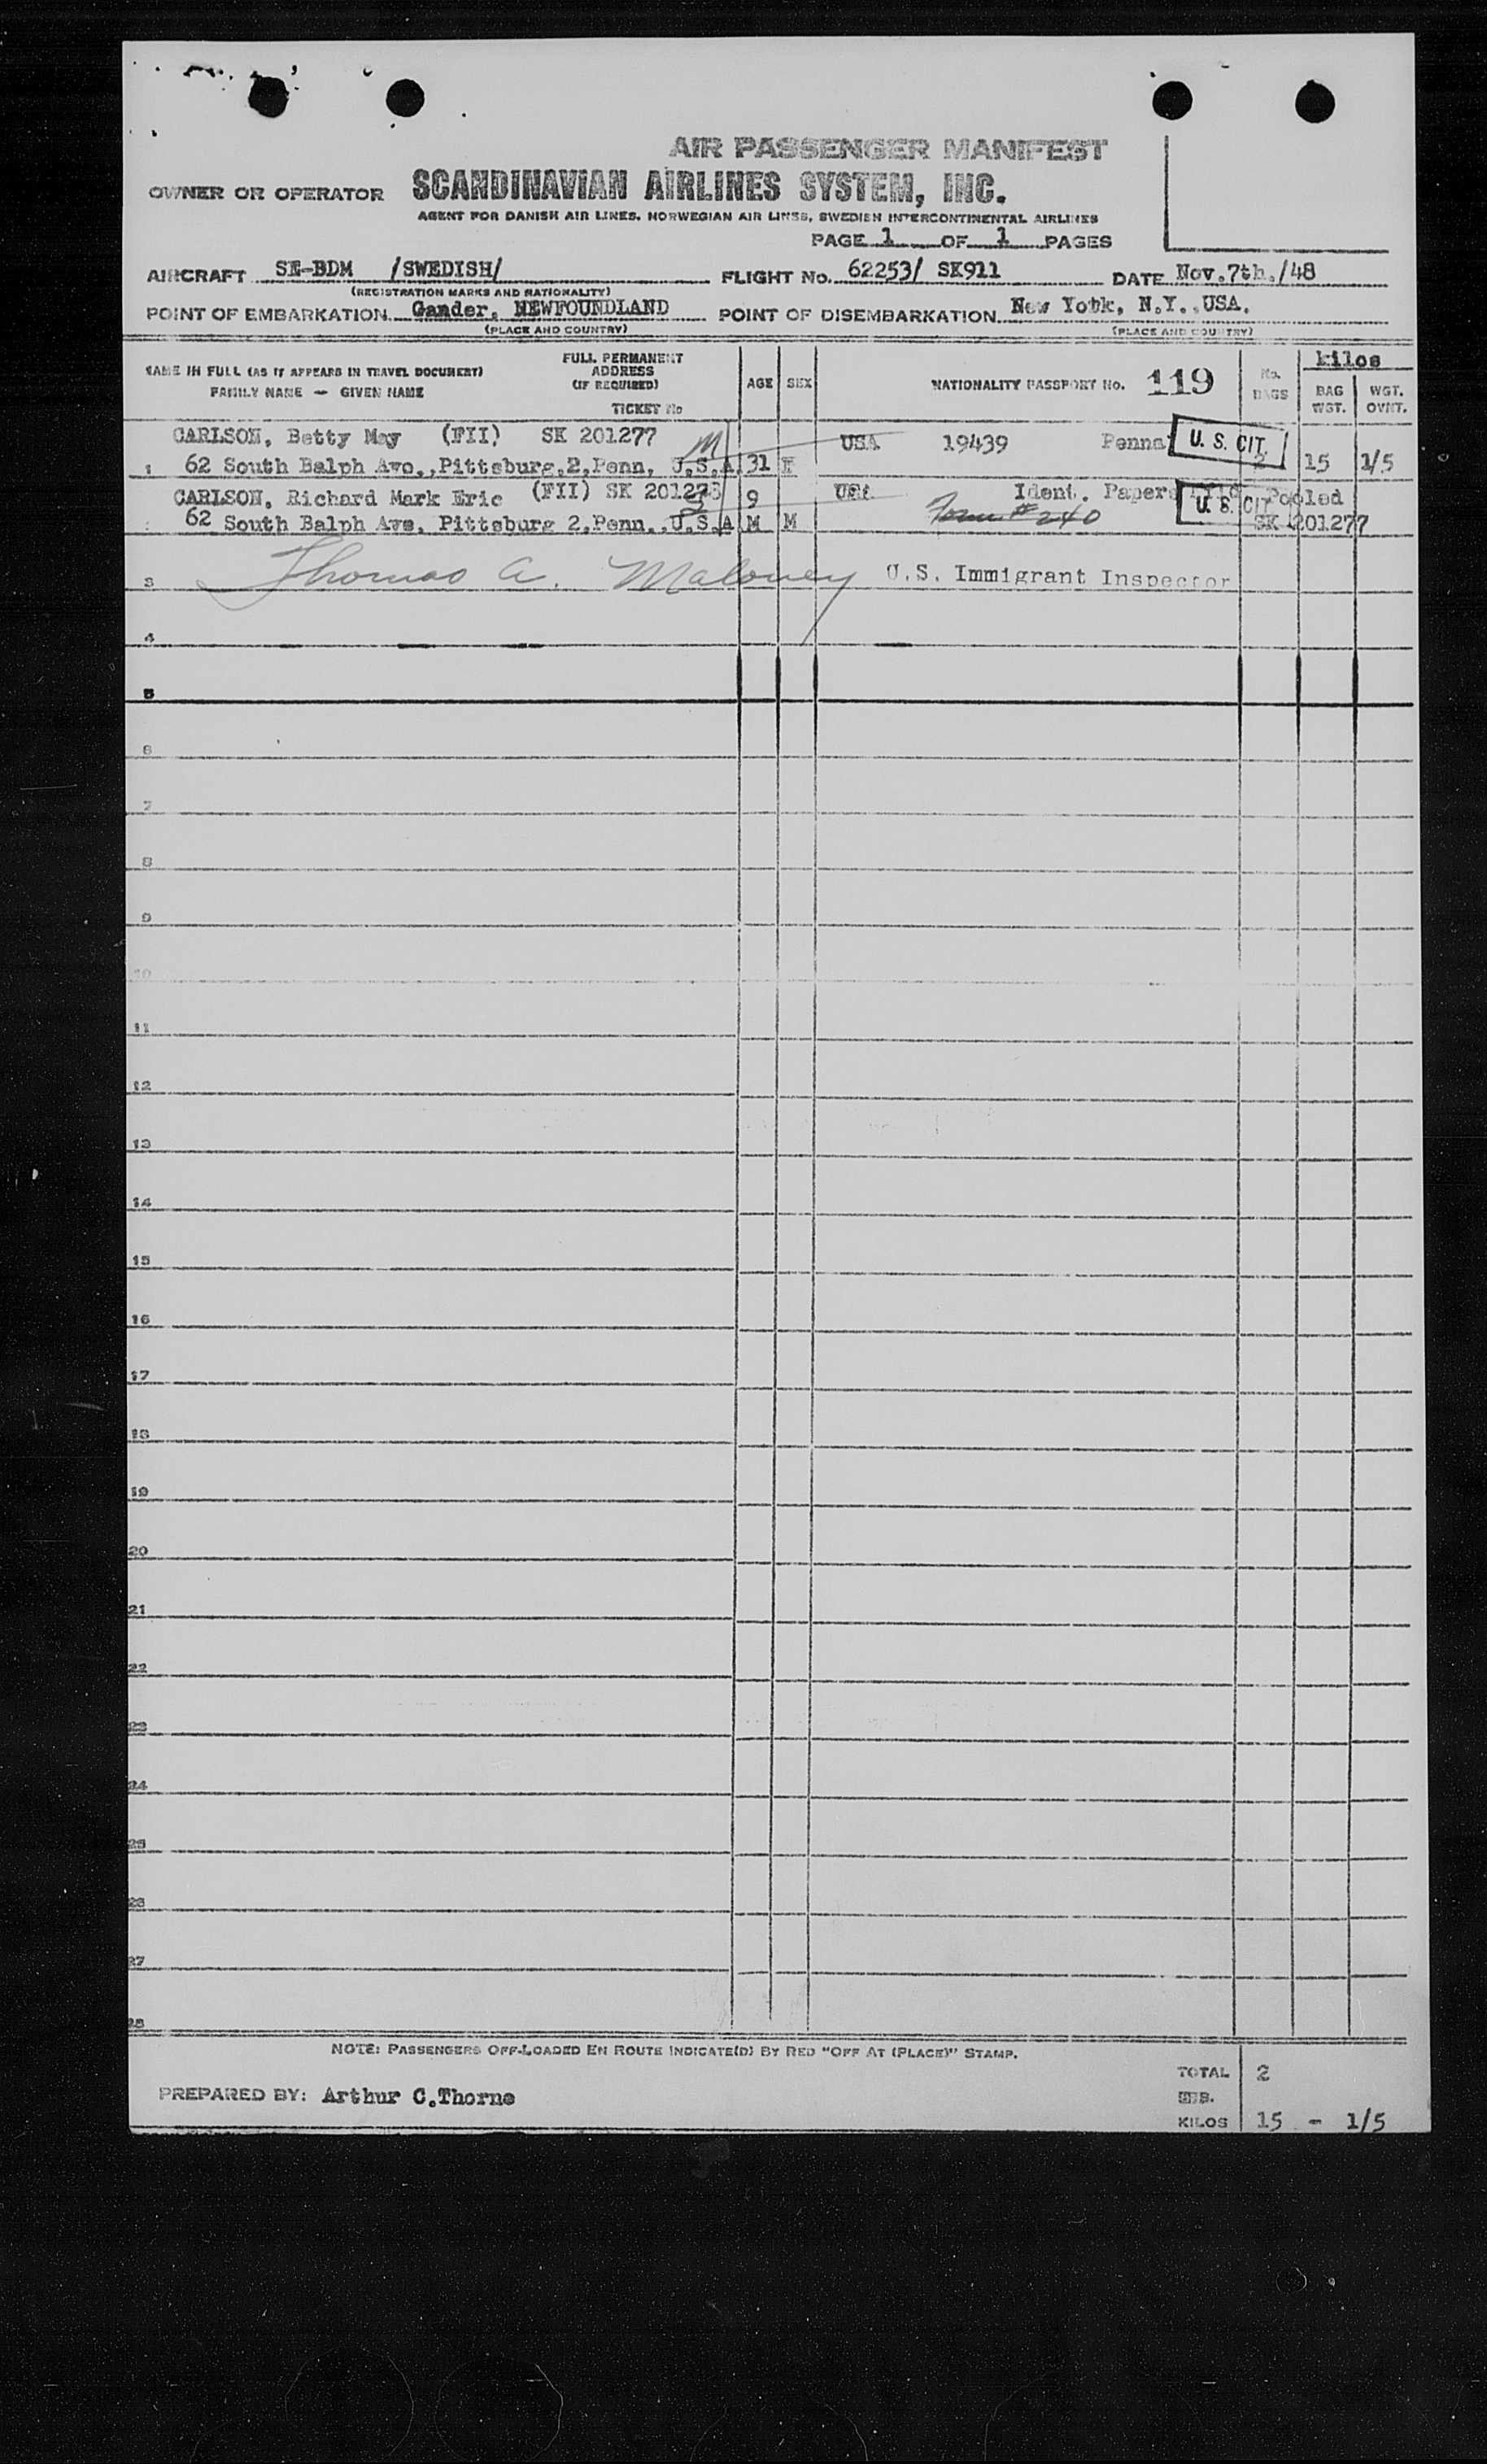 AIR PASSENGER MANIFEST
OWNER OR OPERATOR SCANDINAVIAN AIRLINES SYSTEM, INC.
AGENT FOR DANISH AIR LINES, NORWEGIAN AIR LINES, SWEDISH INTERCONTINENTAL AIRLINES
PAGE 1 OF 1 PAGES
AIRCRAFT SE-BDM /SWEDISH/ FLIGHT No. 62253/ SK911 DATE Nov.7th./48
(REGISTRATION MARKS AND NATIONALITY)
POINT OF EMBARKATION Gander, NEWFOUNDLAND POINT OF DISEMBARKATION New Yobk, N.Y.,USA.
(PLACE AND COUNTRY) (PLACE AND COUNTRY)
NAME IN FULL (AS IT APPEARS IN TRAVEL DOCUMENT) FULL PERMANENT ADDRESS (IF REQUIRED) AGE SEX NATIONALITY PASSPORT No. 119 No. BAGS kilos
FAMILY NAME — GIVEN NAME TICKET No BAG WGT. WGT. OVNT.
CARLSON, Betty May (FII) SK 201277 M USA 19439 Penna. U. S. CIT
1 62 South Balph Ave.,Pittsburg,2,Penn, U.S.A 31 F 2 15 1/5
CARLSON, Richard Mark Eric (FII) SK 201278 9 USA Ident. Papers U. S. CIT Pooled
62 South Balph Ave. Pittsburg 2,Penn.,U.S.A M M Form # 240 SK 201277
3 Thomas A. Maloney U.S. Immigrant Inspector
4
5
6
7
8
9
10
11
12
13
14
15
16
17
18
19
20
21
22
23
24
25
26
27
28
NOTE: PASSENGERS OFF-LOADED EN ROUTE INDICATE(D) BY RED "OFF AT (PLACE)" STAMP.
TOTAL 2
PREPARED BY: Arthur C.Thorne
KILOS 15 - 1/5